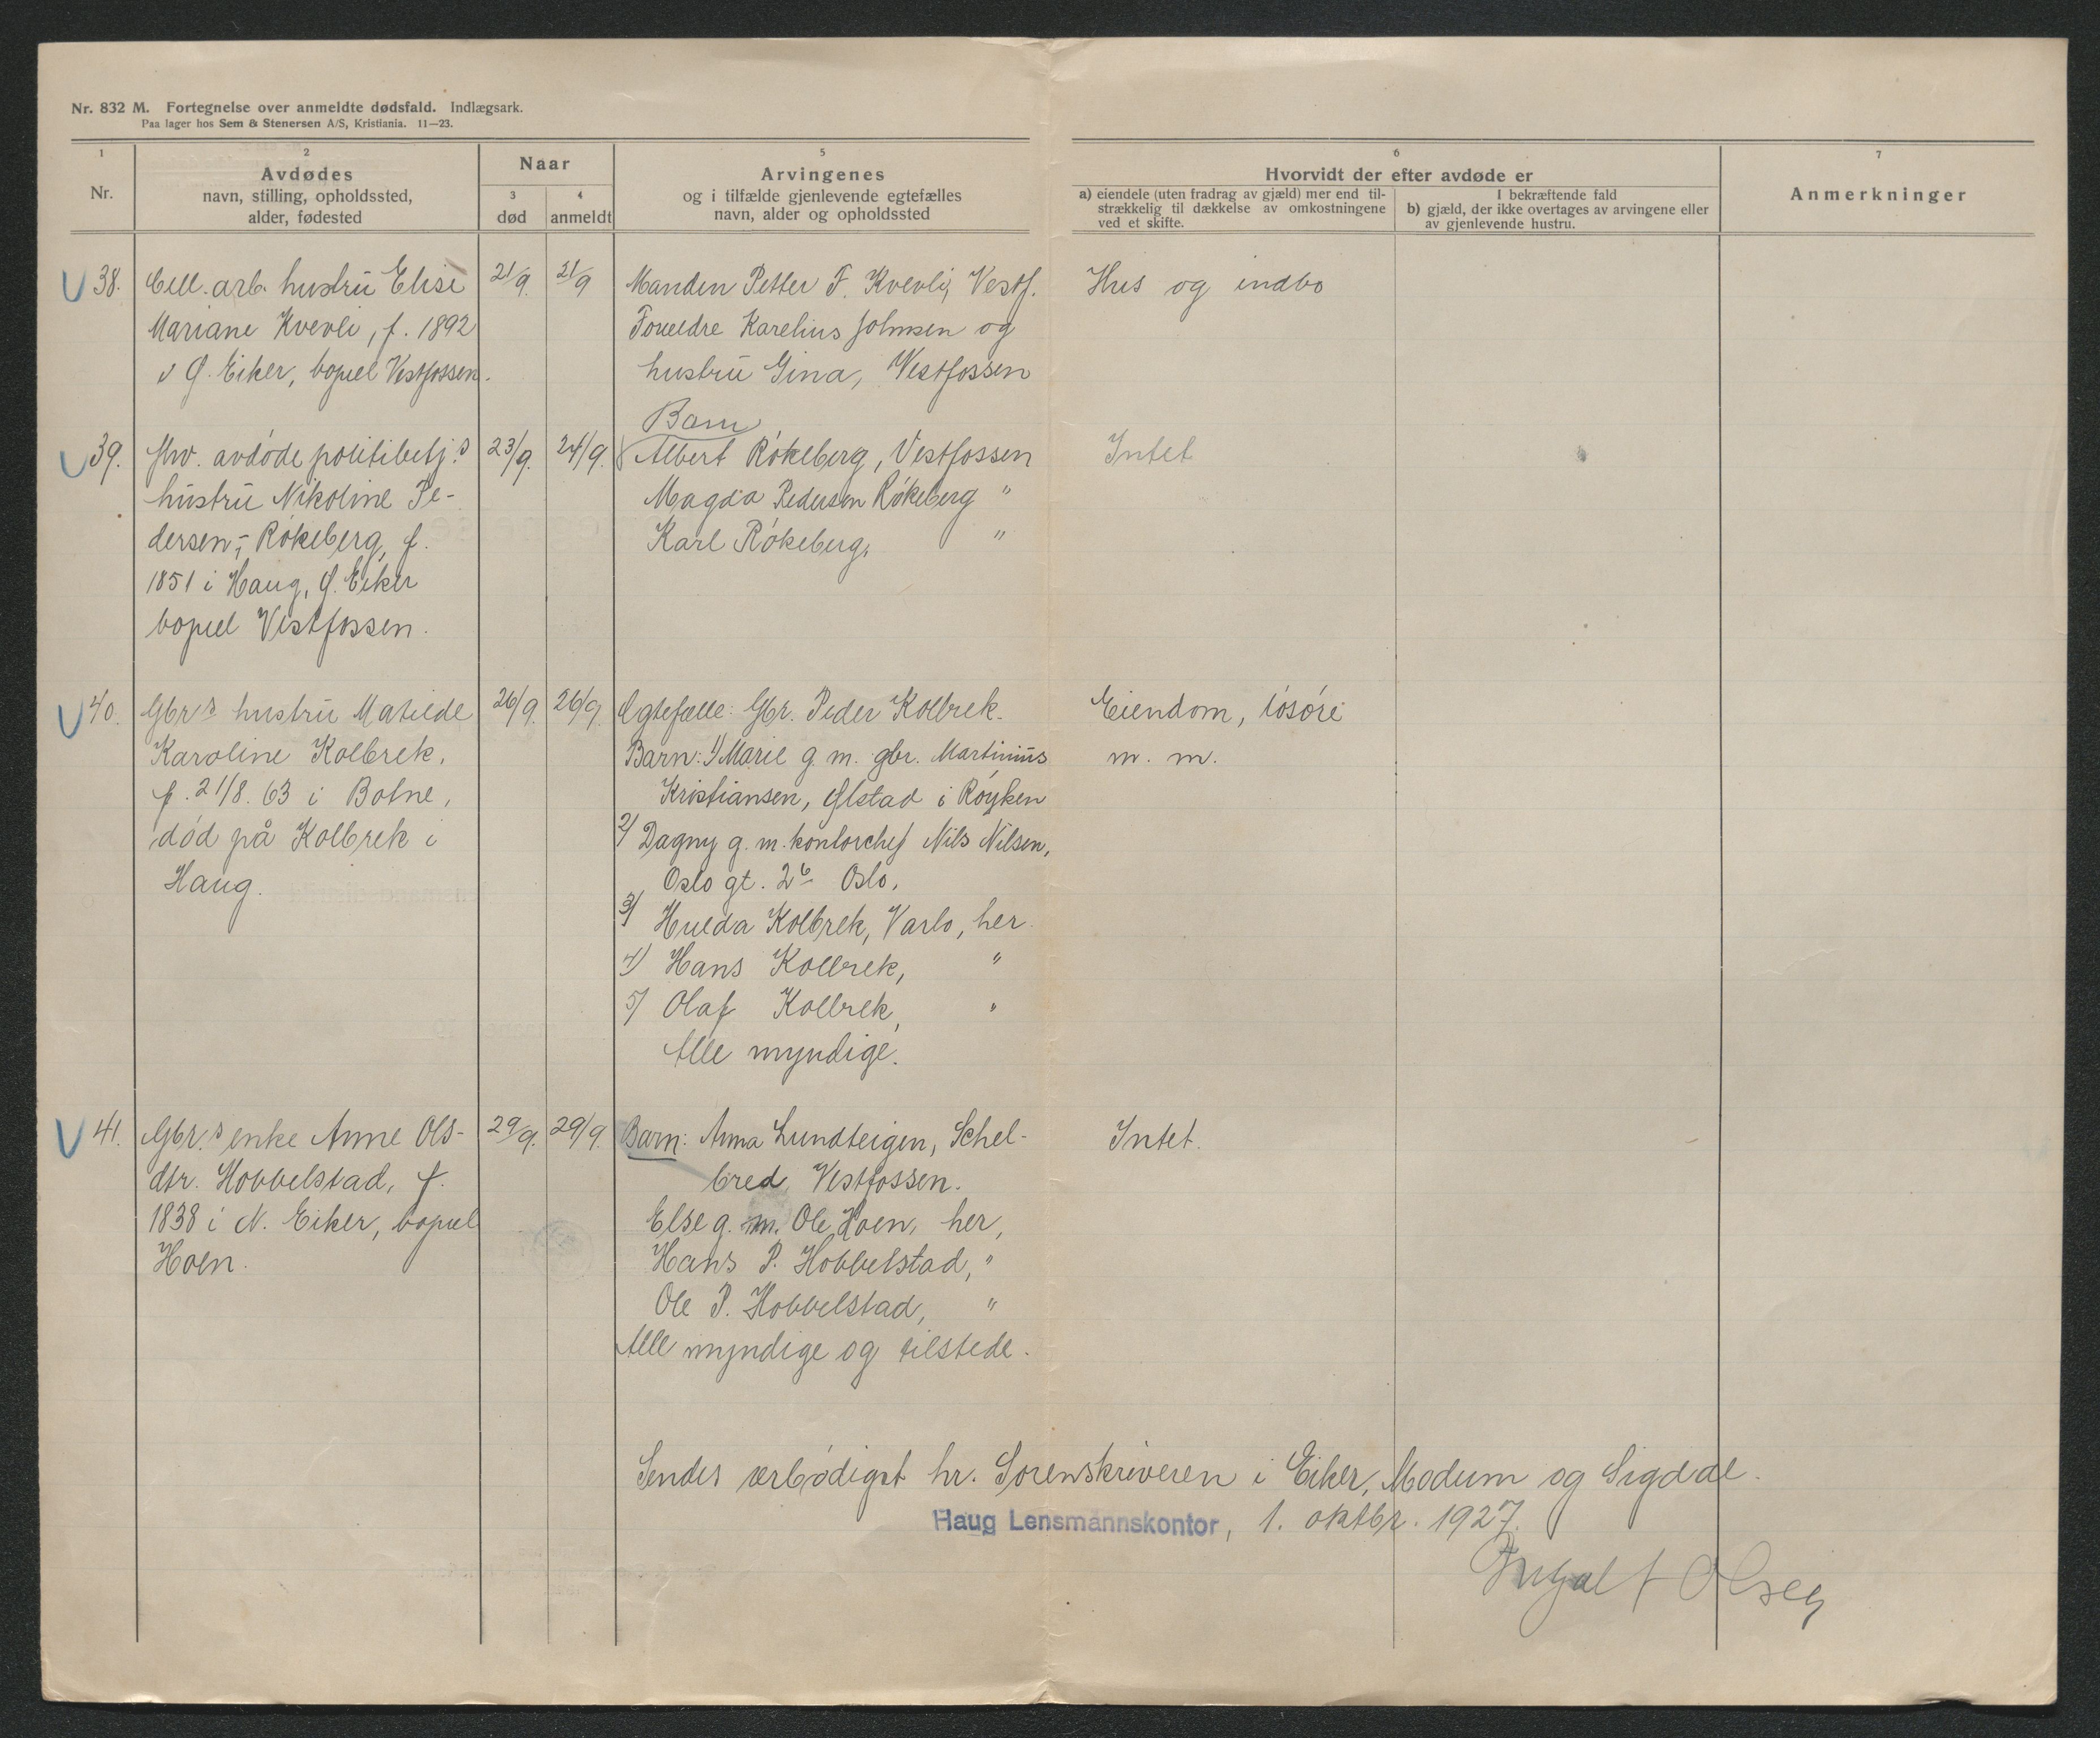 Nr. 832 M. Fortegnelse over anmeldte dødsfald. Indlægsark.
Paa lager hos Sem & Stenersen A/S, Kristiania. 11—23.
1
Nr.
2
Avdødes
navn, stilling, opholdssted,
alder, fødested
Naar
3
død
4
anmeldt
5
Arvingenes
og i tilfælde gjenlevende egtefælles
navn, alder og opholdssted
6
Hvorvidt der efter avdøde er
a) eiendele (uten fradrag av gjæld) mer end til-
strækkelig til dækkelse av omkostningene
ved et skifte.
I bekræftende fald
b) gjæld, der ikke overtages av arvingene eller
av gjenlevende hustru.
7
Anmerkninger
38.
Cell. arb. hustru Elise
Mariane Kvevli, f. 1892
i Ø. Eiker, bopæl Vestfossen.
21/9.
21/9
Manden Petter F. Kvevli, Vestf.
Foreldre Karelius Johnsen og
hustru Gina, Vestfossen
Hus og indbo
39.
fhv. avdøde politibetj.s
hustru Nikoline Pe-
dersen-Røkeberg, f.
1851 i Haug, Ø. Eiker
bopæl Vestfossen.
23/9.
24/9.
Barn
Albert Røkeberg, Vestfossen
Magda Pedersen Røkeberg "
Karl Røkeberg, "
Intet
40.
Gbr.s hustru Matilde
Karoline Kolbrek,
f. 21/8. 63 i Botne,
død på Kolbrek i
Haug.
26/9.
26/9.
Egtefælle: Gbr. Peder Kolbrek.
Barn: 1) Marie g. m. gbr. Martinius
Kristiansen, Ølstad i Røyken
2) Dagny g. m. kontorchef Nils Nilsen,
Oslo gt. 26 Oslo,
3) Hulda Kolbrek, Varlo, her
4) Hans Kolbrek, "
5) Olaf Kolbrek, "
Alle myndige.
Eiendom, løsøre
m. m.
41.
Gbr.s enke Anne Ols-
dtr. Hobbelstad, f.
1838 i N. Eiker, bopæl
Hoen.
29/9.
29/9.
Barn: Anna Lundteigen, Schel-
bred, Vestfossen.
Else g. m. Ole Hoen, her,
Hans P. Hobbelstad, "
Ole P. Hobbelstad, "
Alle myndige og tilstede.
Intet.
Sendes ærbødigst hr. Sorenskriveren i Eiker, Modum og Sigdal.
Haug Lensmannskontor, 1. oktbr. 1927.
Olsen